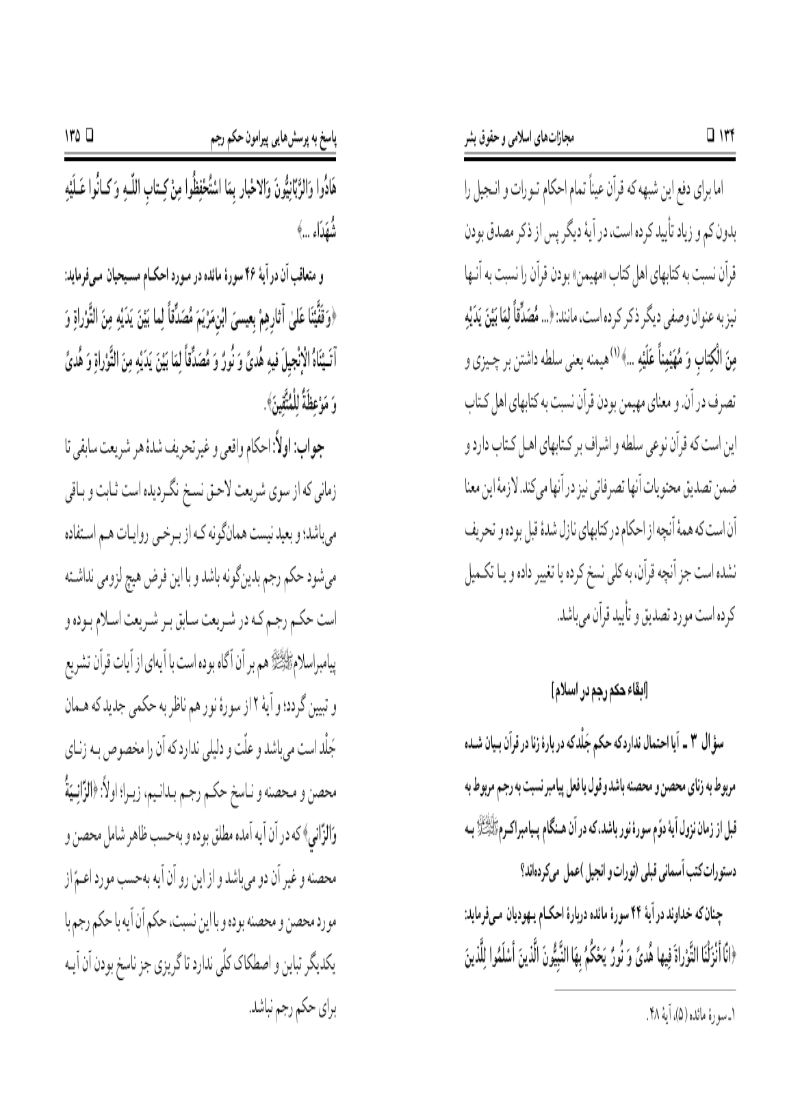 ۱۳۴ ❑ مجازات‌های اسلامی و حقوق بشر
اما برای دفع این شبهه که قرآن عیناً تمام احکام تورات و انجیل را
بدون کم و زیاد تأیید کرده است، در آیهٔ دیگر پس از ذکر مصدق بودن
قرآن نسبت به کتابهای اهل کتاب «مهیمن» بودن قرآن را نسبت به آنها
نیز به عنوان وصفی دیگر ذکر کرده است، مانند: ﴿... مُصَدِّقاً لِمَا بَيْنَ يَدَيْهِ
مِنَ الْكِتَابِ وَ مُهَيْمِناً عَلَيْهِ ...﴾(۱) هیمنه یعنی سلطه داشتن بر چیزی و
تصرف در آن. و معنای مهیمن بودن قرآن نسبت به کتابهای اهل کتاب
این است که قرآن نوعی سلطه و اشراف بر کتابهای اهل کتاب دارد و
ضمن تصدیق محتویات آنها تصرفاتی نیز در آنها می‌کند. لازمهٔ این معنا
آن است که همهٔ آنچه از احکام در کتابهای نازل شدهٔ قبل بوده و تحریف
نشده است جز آنچه قرآن، به کلی نسخ کرده یا تغییر داده و یا تکمیل
کرده است مورد تصدیق و تأیید قرآن می‌باشد.
[ابقاء حکم رجم در اسلام]
سؤال ۳ ـ آیا احتمال ندارد که حکم جَلْد که دربارهٔ زنا در قرآن بیان شده
مربوط به زنای محصن و محصنه باشد و قول یا فعل پیامبر نسبت به رجم مربوط به
قبل از زمان نزول آیهٔ دوّم سورهٔ نور باشد، که در آن هنگام پیامبراکرم ﷺ به
دستورات کتب آسمانی قبلی (تورات و انجیل) عمل می‌کرده‌اند؟
چنان که خداوند در آیهٔ ۴۴ سورهٔ مائده دربارهٔ احکام یهودیان می‌فرماید:
﴿انَّا أَنْزَلْنَا التَّوْراةَ فِيها هُدىً وَ نُورٌ يَحْكُمُ بِهَا النَّبِيُّونَ الَّذينَ أَسْلَمُوا لِلَّذينَ
۱ـ سورهٔ مائده (۵)، آیهٔ ۴۸.
پاسخ به پرسش‌هایی پیرامون حکم رجم ❑ ۱۳۵
هَادُوا وَالرَّبَّانِيُّونَ وَالاحْبار بِمَا اسْتُحْفِظُوا مِنْ كِتابِ اللّهِ وَ كَانُوا عَلَيْهِ
شُهَدَاء ...﴾
و متعاقب آن در آیهٔ ۴۶ سورهٔ مائده در مورد احکام مسیحیان می‌فرماید:
﴿وَ قَفَّيْنَا عَلىٰ آثارِهِمْ بِعِيسىَ ابْنِ‌مَرْيَمَ مُصَدِّقاً لِما بَيْنَ يَدَيْهِ مِنَ التَّوْراةِ وَ
آتَيْنَاهُ الْإنْجيلَ فيهِ هُدىً وَ نُورٌ وَ مُصَدِّقاً لِمَا بَيْنَ يَدَيْهِ مِنَ التَّوْراةِ وَ هُدىً
وَ مَوْعِظَةً لِلْمُتَّقِينَ﴾.
جواب: اولاً: احکام واقعی و غیرتحریف شدهٔ هر شریعت سابقی تا
زمانی که از سوی شریعت لاحق نسخ نگردیده است ثابت و باقی
می‌باشد؛ و بعید نیست همان‌گونه که از برخی روایات هم استفاده
می‌شود حکم رجم بدین‌گونه باشد و با این فرض هیچ لزومی نداشته
است حکم رجم که در شریعت سابق بر شریعت اسلام بوده و
پیامبراسلام ﷺ هم بر آن آگاه بوده است با آیه‌ای از آیات قرآن تشریع
و تبیین گردد؛ و آیهٔ ۲ از سورهٔ نور هم ناظر به حکمی جدید که همان
جَلْد است می‌باشد و علّت و دلیلی ندارد که آن را مخصوص به زنای
محصن و محصنه و ناسخ حکم رجم بدانیم، زیرا؛ اولاً: ﴿الزَّانِيَةُ
وَالزّاني﴾ که در آن آیه آمده مطلق بوده و به‌حسب ظاهر شامل محصن و
محصنه و غیر آن دو می‌باشد و از این رو آن آیه به‌حسب مورد اعمّ از
مورد محصن و محصنه بوده و با این نسبت، حکم آن آیه با حکم رجم با
یکدیگر تباین و اصطکاک کلّی ندارد تا گریزی جز ناسخ بودن آن آیه
برای حکم رجم نباشد.